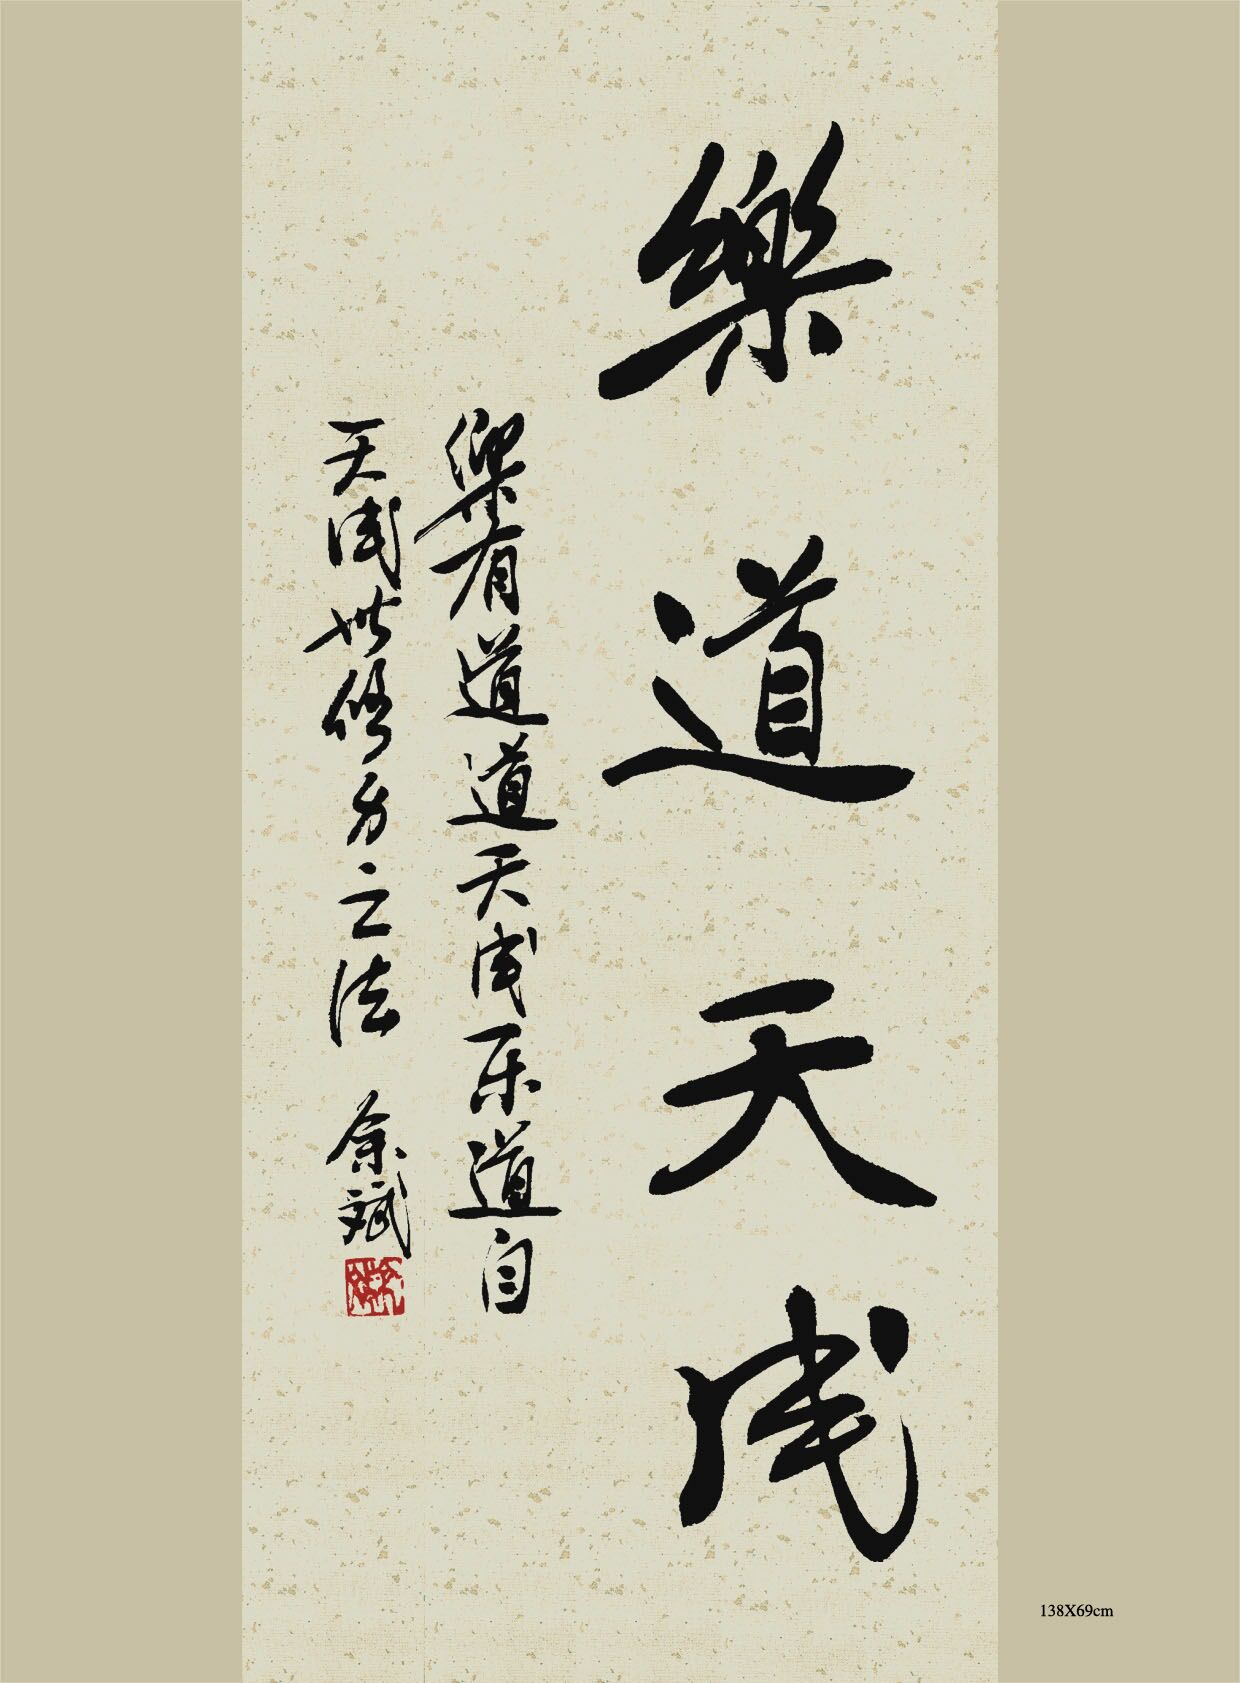 樂道天成
樂有道道天成乐道自
天成世修身之法 余斌
138X69cm